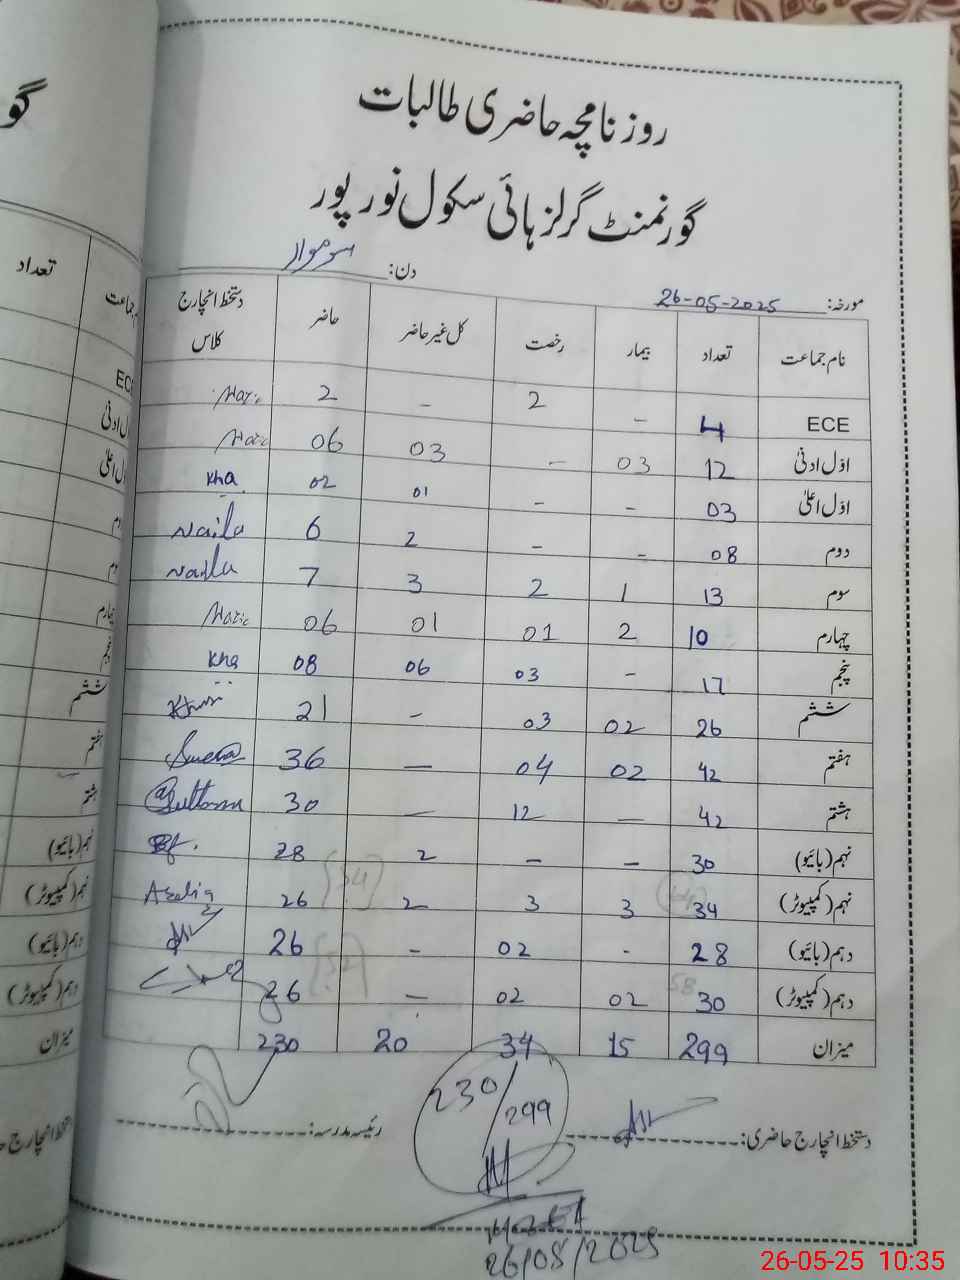 روزنامچہ حاضری طالبات
گورنمنٹ گرلز ہائی سکول نور پور
دن: سوموار
مورخہ: 26-05-2025
نام جماعت تعداد بیمار رخصت کل غیر حاضر حاضر دستخط انچارج کلاس
ECE 4 - 2 - 2
اوّل ادنیٰ 12 03 - 03 06
اوّل اعلیٰ 03 - - 01 02 Kha
دوم 08 - - 2 6 Naila
سوم 13 1 2 3 7 Naila
چہارم 10 2 01 01 06
پنجم 17 - 03 06 08 Kha
ششم 26 02 03 - 21
ہفتم 42 02 04 — 36
ہشتم 42 — 12 — 30
نہم (بائیو) 30 - - 2 28
نہم (کمپیوٹر) 34 3 3 2 26
دہم (بائیو) 28 - 02 - 26
دہم (کمپیوٹر) 30 02 02 — 26
میزان 299 15 34 20 230
دستخط انچارج حاضری:
رئیسہ مدرسہ:
230/299
26/05/2025
تعداد
جماعت
ششم
نہم (بائیو)
نہم (کمپیوٹر)
دہم (بائیو)
دہم (کمپیوٹر)
میزان
26-05-25 10:35